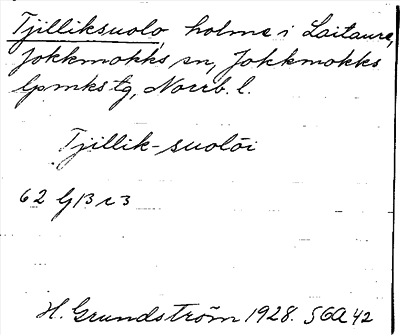 Tjilliksuolo, holme i Laitaure,
Jokkmokks sn, Jokkmokks
lpmks tg, Norrb. l.
Tjillik-suolōi
62 G 13 c 3
H. Grundström 1928. SOA 42